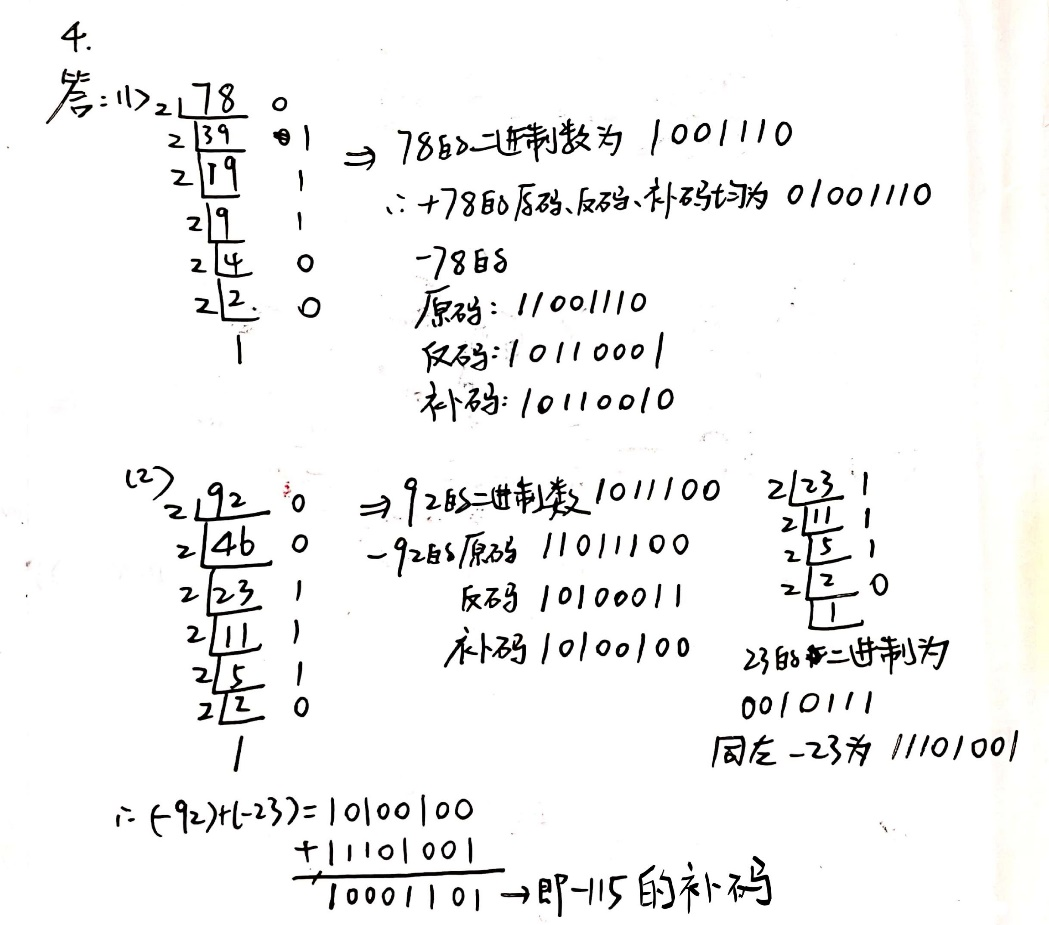 4.
答:(1) 2 78 0
2 39 1
2 19 1
2 9 1
2 4 0
2 2 0
1
⇒ 78的二进制数为 1001110
∴ +78的原码、反码、补码均为 01001110
-78的
原码: 11001110
反码: 10110001
补码: 10110010
(2) 2 92 0
2 46 0
2 23 1
2 11 1
2 5 1
2 2 0
1
⇒ 92的二进制数 1011100
-92的原码 11011100
反码 10100011
补码 10100100
2 23 1
2 11 1
2 5 1
2 2 0
1
23的二进制为
0010111
同左 -23为 11101001
∴ (-92)+(-23)= 10100100
+11101001
10001101 → 即-115的补码